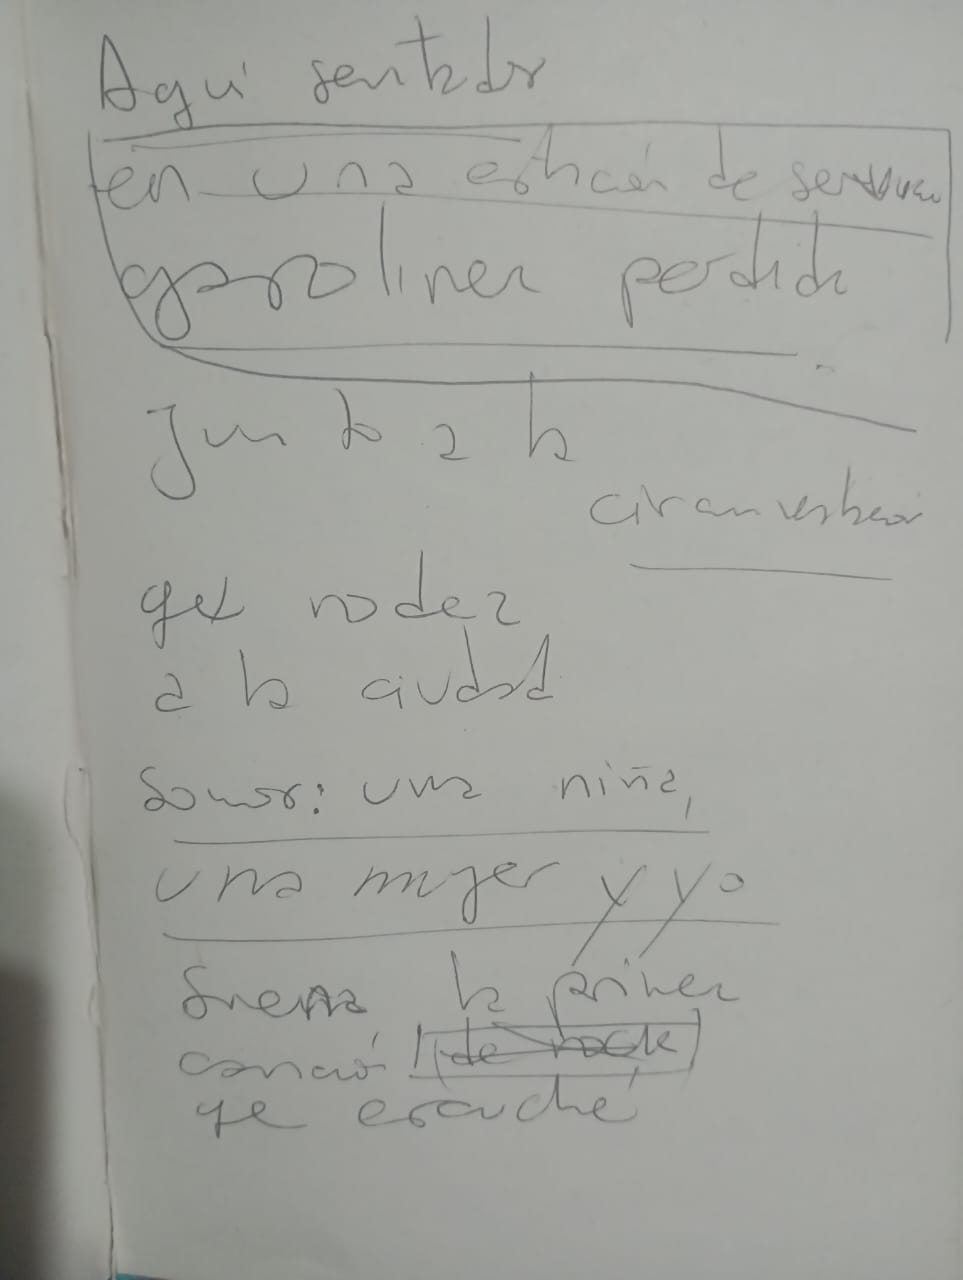 Aquí sentado
en una estación de servicio
gasolinera perdida
junto a la
circunvalación
que rodea
a la ciudad
Somos: una niña,
una mujer y yo
Suena la primera
canción (de rock)
que escuché